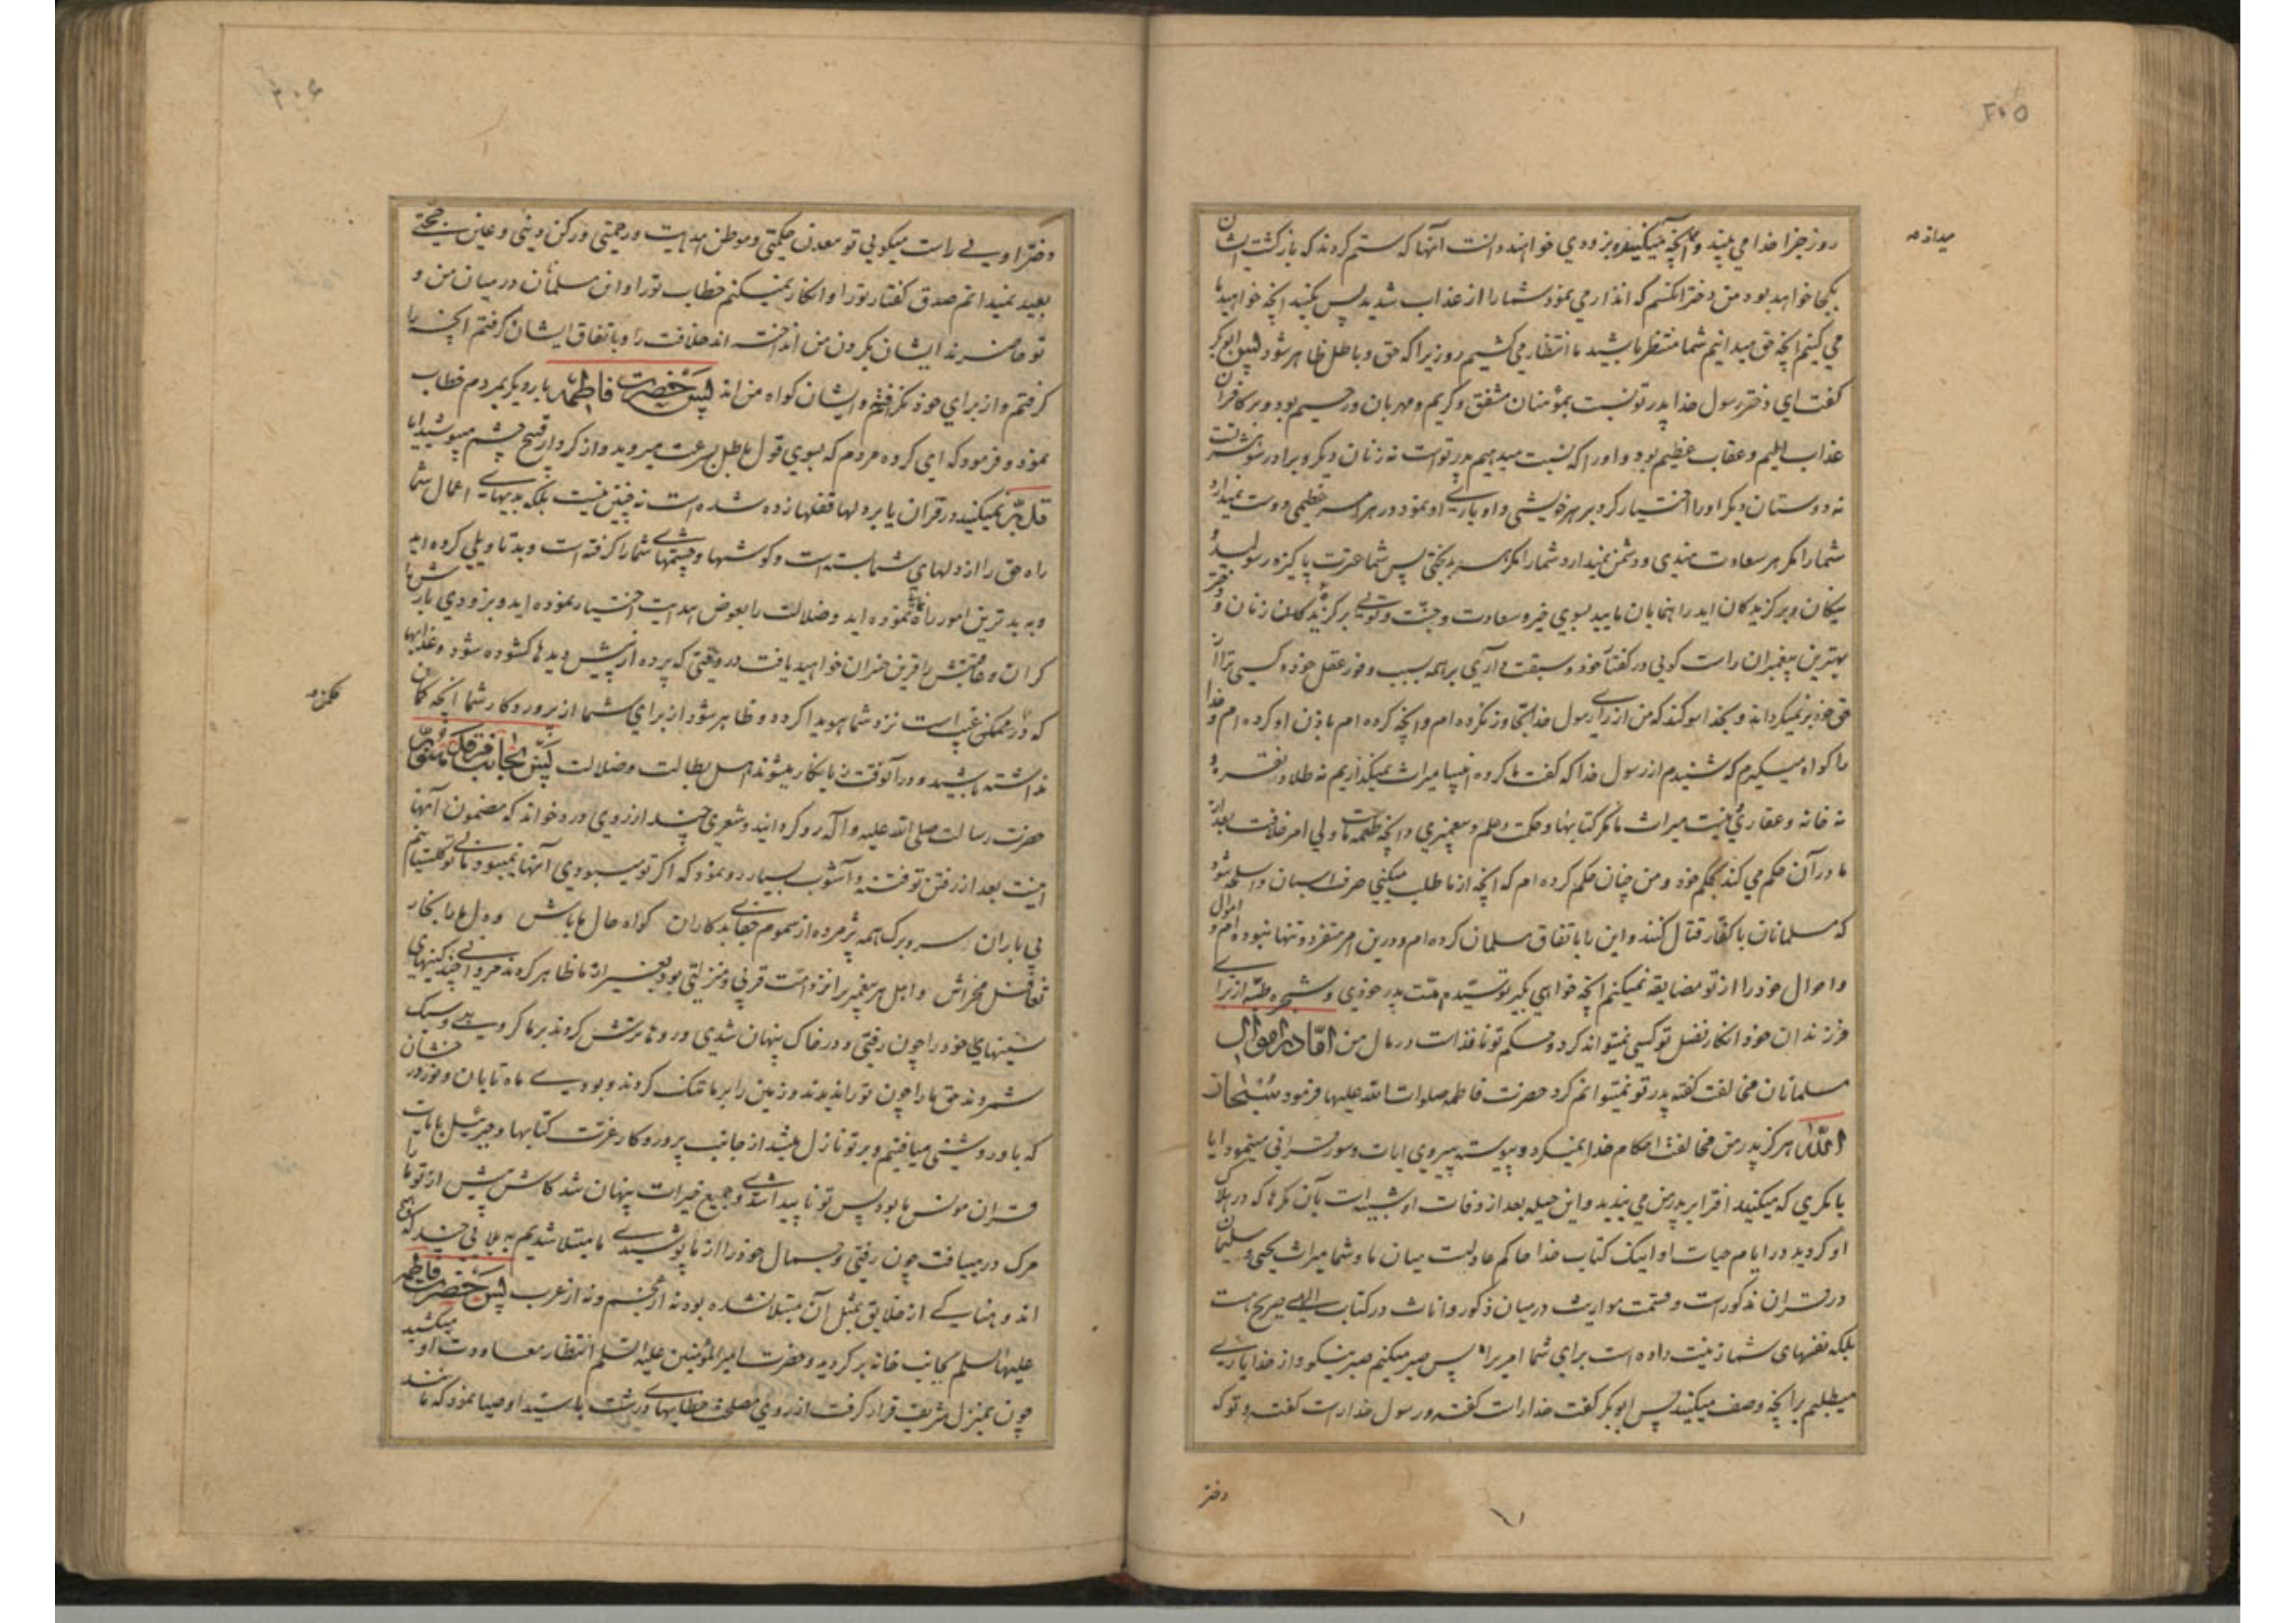 ۲۰۵
روز جزا خدا می بیند و آنچه میکنید و بزودی خواهند دانست آنها که ستم کردند که بازگشت ایشان
بکجا خواهد بود من دختر آنکسم که انذار می نمود شما را از عذاب شدید پس بکنید آنچه خواهید ما
می کنیم آنچه حق میدانیم شما منتظر باشید ما انتظار می کشیم روزیرا که حق و باطل ظاهر شود پس ابوبکر
گفت ای دختر رسول خدا پدر تو نسبت بمؤمنان مشفق و کریم و مهربان و رحیم بود و بر کافران
عذاب الیم و عقاب عظیم بود و او را که نسبت میدهیم پدر تو است نه زنان دیگر و برادر شوهر تست
نه دوستان دیگر او را اختیار کرد بر هر خویشی و او یاری او نمود در هر امر عظیمی دوست نمیدارد
شما را مگر هر سعادت مندی و دشمن نمیدارد شما را مگر هر بدبختی پس شما عترت پاکیزه رسولید و
نیکان و برگزیدگان اید راهنمایان مایید بسوی خیر و سعادت و جنت و تویی برگزیدگان زنان و دختر
بهترین پیغمبران راست گویی در گفتار خود و سبقت داری بر همه بسبب وفور عقل خود و کسی ترا از
حق خود بر نمیگرداند و بخدا سوگند که من از رای رسول خدا تجاوز نکرده ام و آنچه کرده ام باذن او کرده ام و خدا
را گواه میگیرم که شنیدم از رسول خدا که گفت ما گروه انبیا میراث نمیگذاریم نه طلا و نقره و
نه خانه و عقاری نیست میراث ما مگر کتابها و حکمت و علم و پیغمبری و آنچه طعمه ماست ولی امر خلافت بعد از
ما در آن حکم می کند بحکم خود و من چنان حکم کرده ام که آنچه از ما طلب میکنی صرف اسبان و اسلحه شود
که مسلمانان با کفار قتال کنند و این را باتفاق مسلمانان کرده ام و درین امر متفرد و تنها نبوده ام و اموال
و احوال خود را از تو مضایقه نمیکنم آنچه خواهی بگیر تو سیده امت پدر خودی و شجره طیبه از برای
فرزندان خود انکار فضل تو کسی نمیتواند کرد و حکم تو نافذ است در مال من اما در اموال
مسلمانان مخالفت گفته پدر تو نمیتوانم کرد حضرت فاطمه صلوات الله علیها فرمود سبحان
الله هرگز پدر من مخالفت احکام خدا نمیکرد و پیوسته پیروی آیات و سور قرآنی مینمود آیا
با مکری که میکنید افترا بر پدر من می بندید و این حیله بعد از وفات او شبیه است بآن مکرها که در هلاک
او کردید در ایام حیات او اینک کتاب خدا حاکم عادلست میان ما و شما میراث یحیی و سلیمان
در قرآن مذکور است و قسمت مواریث در میان ذکور و اناث در کتاب الهی صریح است
بلکه نفسهای شما زینت داده است برای شما امر یرا پس صبر میکنم صبر نیکو و از خدا یاری
میطلبم بر آنچه وصف میکنید پس ابوبکر گفت خدا راست گفته و رسول خدا راست گفته و تو که
دختر
۲۰۶
دختر اویی راست میگویی تو معدن حکمتی و موطن هدایت و رحمتی و رکن دینی و عین حجتی
بعید نمیدانم صدق گفتار تو را و انکار نمیکنم خطاب تو را و این مسلمانان در میان من و
تو حاضرند ایشان بگردن من انداخته اند خلافت را و باتفاق ایشان گرفتم آنچه را
گرفتم و از برای خود نگرفتم و ایشان گواه من اند پس حضرت فاطمه بار دیگر بمردم خطاب
نمود و فرمود که ای گروه مردم که بسوی قول باطل بسرعت میروید و از کردار قبیح چشم میپوشید آیا
تدبر نمیکنید در قرآن یا بر دلها قفلها زده شده است نه چنین نیست بلکه بدیهای اعمال شما
راه حق را از دلهای شما بسته است و گوشها و چشمهای شما را گرفته است و بد تاویلی کرده اید
و به بدترین امور راه نموده اید و ضلالت را بعوض هدایت اختیار نموده اید و بزودی بارش را
گران و عاقبتش را قرین خسران خواهید یافت در وقتی که پرده از پیش دیدها گشوده شود و عذابها
که در ممکن غیب است نزد شما هویدا گردد و ظاهر شود از برای شما از پروردگار شما آنچه گمان
نداشته باشید و در آنوقت زیانکار میشوند اهل بطالت و ضلالت پس بجانب مرقد منور
حضرت رسالت صلی الله علیه و آله رو گردانید و شعری چند از روی درد خواند که مضمون آنها
اینست بعد از رفتن تو فتنه و آشوب بسیار رو نمود که اگر تو میبودی آنها نمیبود مائیم
بی باران سر و برگ همه پژمرده از سموم جفای بدکاران گواه حال ما باش و دل ما را بخار
تغافل مخراش و اهل هر پیغمبر را نزد امت قربی و منزلتی بود بغیر از ما ظاهر کردند مردی چند کینهای
سینهای خود را چون رفتی و در خاک پنهان شدی و رو ها ترش کردند بر ما گروهی و سبک
شمردند حق ما را چون تو را ندیدند و زمین را بر ما تنگ کردند و بودی ماه تابان و نور درخشان
که باو روشنی میافتیم و بر تو نازل میشد از جانب پروردگار عزت کتابها و جبرئیل بآیات
قرآن مونس ما بود پس تو ناپیدا شدی و جمیع خیرات پنهان شد کاش پیش از تو ما را
مرگ در میافت چون رفتی و جمال خود را از ما پوشیدی ما مبتلا شدیم به بلایی چند که هیچ
اندوهناکی از خلایق بمثل آن مبتلا نشده بود نه از عجم و نه از عرب پس حضرت فاطمه
علیها السلام بجانب خانه برگردید و حضرت امیر المؤمنین علیه السلام انتظار معاودت او میکشید
چون بمنزل شریف قرار گرفت از روی مصلحت خطابهای درشت با سید اوصیا نمود که مانند